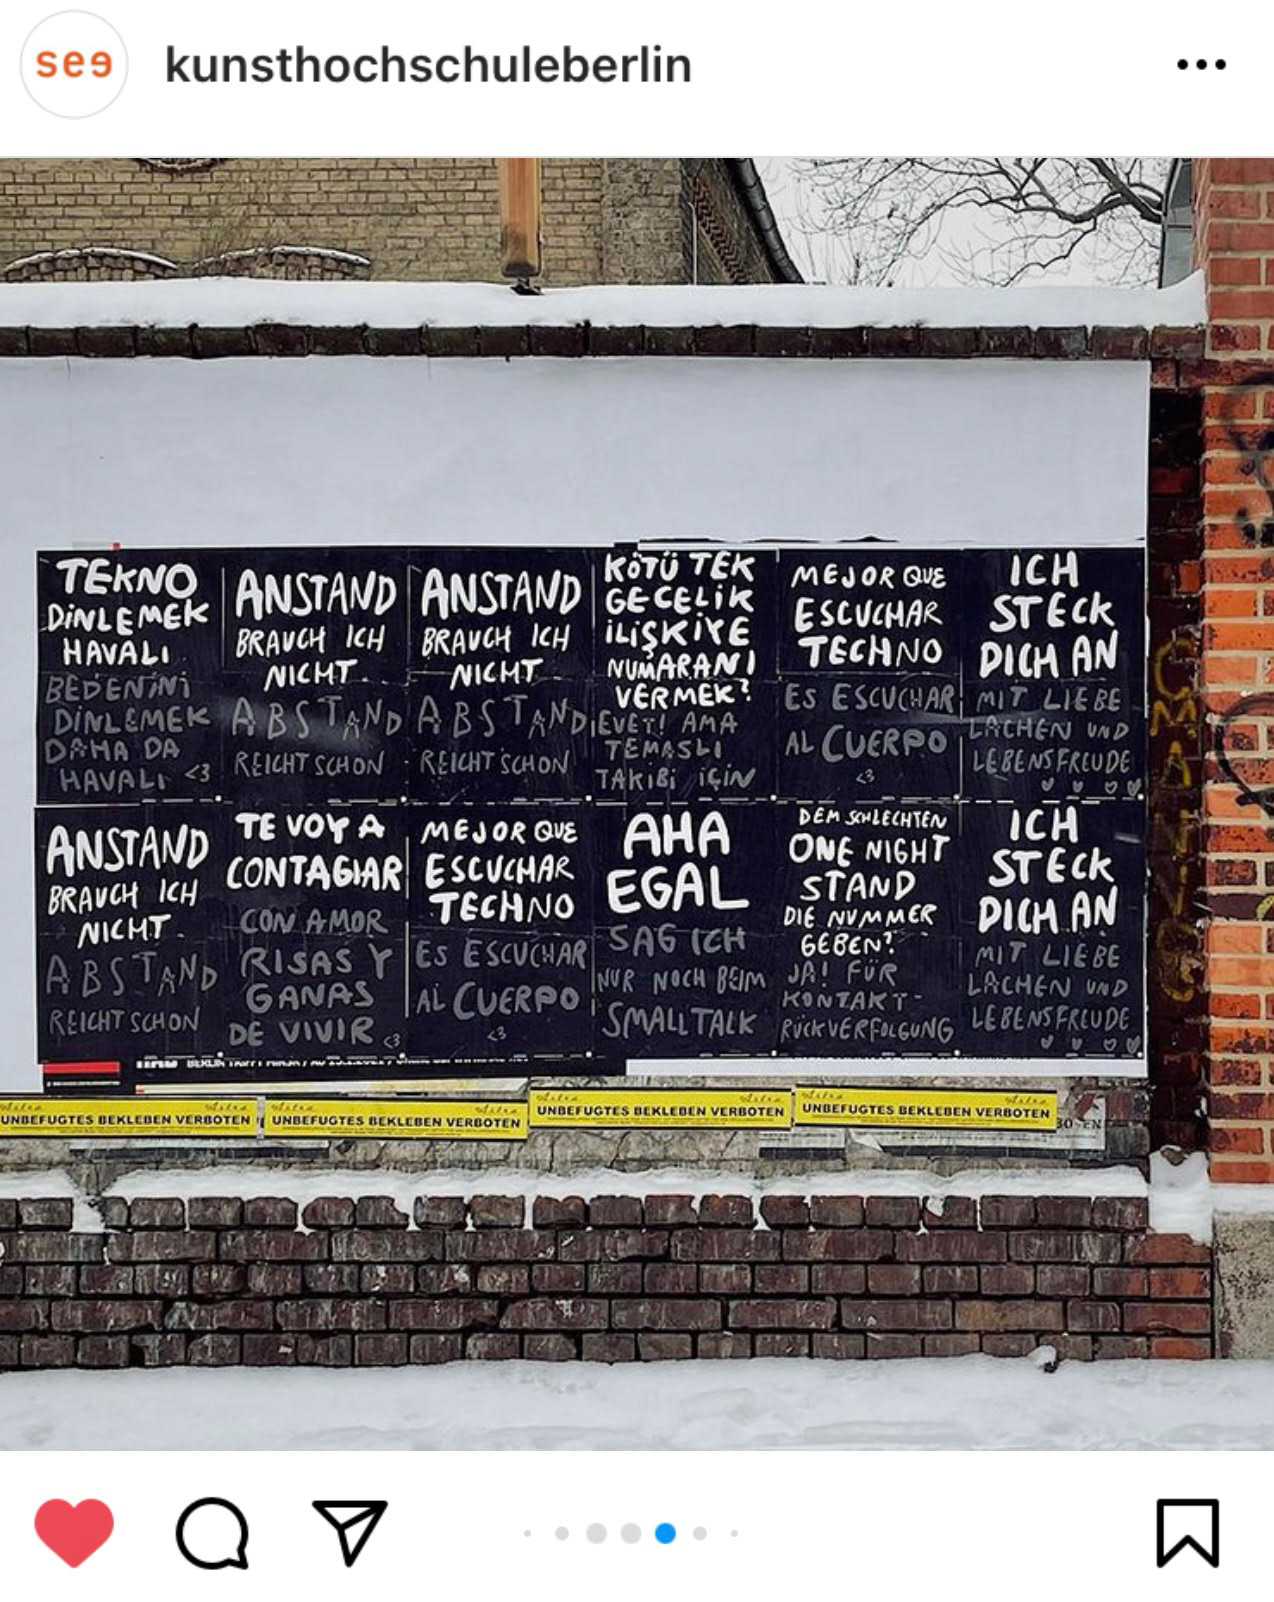 see
kunsthochschuleberlin
TEKNO
DİNLEMEK
HAVALI
BEDENİNİ
DİNLEMEK
DAHA DA
HAVALI <3
ANSTAND
BRAUCH ICH
NICHT.
ABSTAND
REICHT SCHON
ANSTAND
BRAUCH ICH
NICHT.
ABSTAND
REICHT SCHON
KÖTÜ TEK
GECELİK
İLİŞKİYE
NUMARANI
VERMEK?
EVET! AMA
TEMASLI
TAKİBİ İÇİN
MEJOR QUE
ESCUCHAR
TECHNO
ES ESCUCHAR
AL CUERPO
<3
ICH
STECK
DICH AN
MIT LIEBE
LACHEN UND
LEBENSFREUDE
ANSTAND
BRAUCH ICH
NICHT.
ABSTAND
REICHT SCHON
TE VOY A
CONTAGIAR
CON AMOR
RISAS Y
GANAS
DE VIVIR <3
MEJOR QUE
ESCUCHAR
TECHNO
ES ESCUCHAR
AL CUERPO
<3
AHA
EGAL
SAG ICH
NUR NOCH BEIM
SMALLTALK
DEM SCHLECHTEN
ONE NIGHT
STAND
DIE NUMMER
GEBEN?
JA! FÜR
KONTAKT-
RÜCKVERFOLGUNG
ICH
STECK
DICH AN
MIT LIEBE
LACHEN UND
LEBENSFREUDE
UNBEFUGTES BEKLEBEN VERBOTEN
UNBEFUGTES BEKLEBEN VERBOTEN
UNBEFUGTES BEKLEBEN VERBOTEN
UNBEFUGTES BEKLEBEN VERBOTEN